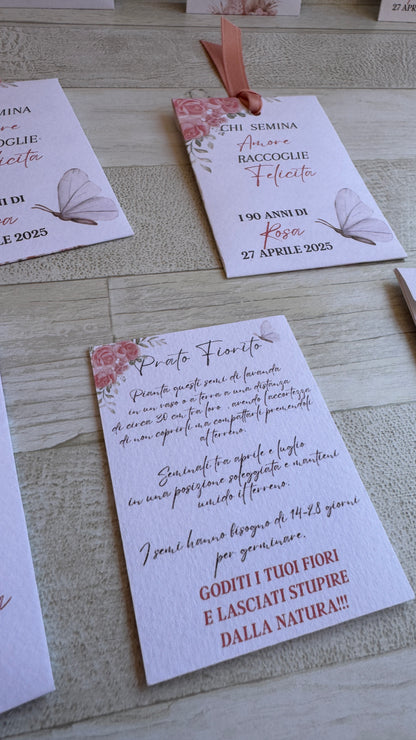 27 APRILE 2025
27 APR
SEMINA
Amore
RACCOGLIE
Felicita
ANNI DI
Rosa
APRILE 2025
CHI SEMINA
Amore
RACCOGLIE
Felicita
I 90 ANNI DI
Rosa
27 APRILE 2025
Prato Fiorito
Pianta questi semi di lavanda
in un vaso o a terra a una distanza
di circa 30 cm tra loro, avendo l'accortezza
di non coprirli ma compattarli premendoli
al terreno.
Seminali tra aprile e luglio
in una posizione soleggiata e mantieni
umido il terreno.
I semi hanno bisogno di 14-28 giorni
per germinare.
GODITI I TUOI FIORI
E LASCIATI STUPIRE
DALLA NATURA!!!